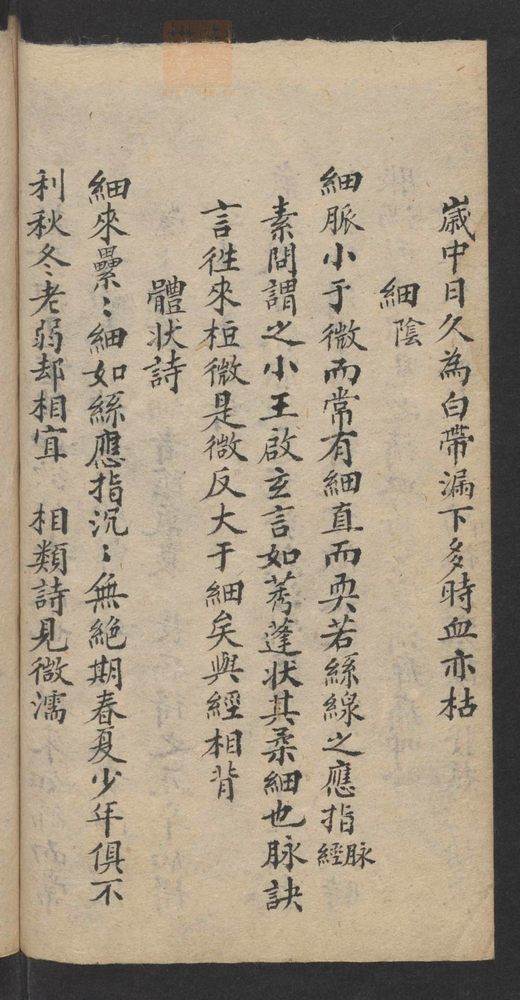 崴中日久為白帶漏下多時血亦枯
細陰
細脈小于微而常有細直而耎若絲線之應指脈經
素問謂之小王啟玄言如莠蓬状其柔細也脉訣
言徃來極微是微反大于細矣與經相背
體状詩
細來纍〻細如絲應指沉〻無絕期春夏少年俱不
利秋冬老弱却相宜　相類詩見微濡